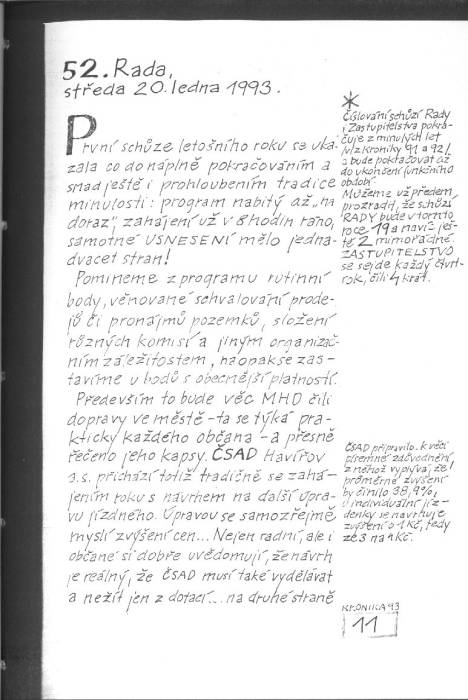 52. Rada,
středa 20. ledna 1993.
První schůze letošního roku se uká-
zala co do náplně pokračováním a
snad ještě i prohloubením tradice
minulosti: program nabitý až „na
doraz", zahájení už v 8 hodin ráno,
samotné USNESENÍ mělo jedna-
dvacet stran!
Pomineme z programu rutinní
body, věnované schvalování prode-
jů či pronájmů pozemků, složení
různých komisí a jiným organizač-
ním záležitostem, naopak se zas-
tavíme u bodů s obecnější platností.
Především to bude věc MHD čili
dopravy ve městě - ta se týká pra-
kticky každého občana - a přesně
řečeno jeho kapsy. ČSAD Havířov
a.s. přichází totiž tradičně se zahá-
jením roku s návrhem na další úpra-
vu jízdného. Úpravou se samozřejmě
myslí zvýšení cen... Nejen radní, ale i
občané si dobře uvědomují, že návrh
je reálný, že ČSAD musí také vydělávat
a nežít jen z dotací... na druhé straně
*
Číslování schůzí Rady
i Zastupitelstva pokra-
čuje z minulých let
/viz kroniky 91 a 92/
a bude pokračovat až
do ukončení funkčního
období.
Můžeme už předem
prozradit, že schůzí
RADY bude v tomto
roce 19 a navíc ješ-
tě 2 mimořádné.
ZASTUPITELSTVO
se sejde každý čtvrt-
rok, čili 4 krát.
ČSAD připravilo k věci
písemné zdůvodnění,
z něhož vyplývá, že
průměrné zvýšení
by činilo 38,9%,
u individuální jíz-
denky se navrhuje
zvýšení o 1 Kč, tedy
ze 3 na 4 Kč.
KRONIKA 93
11